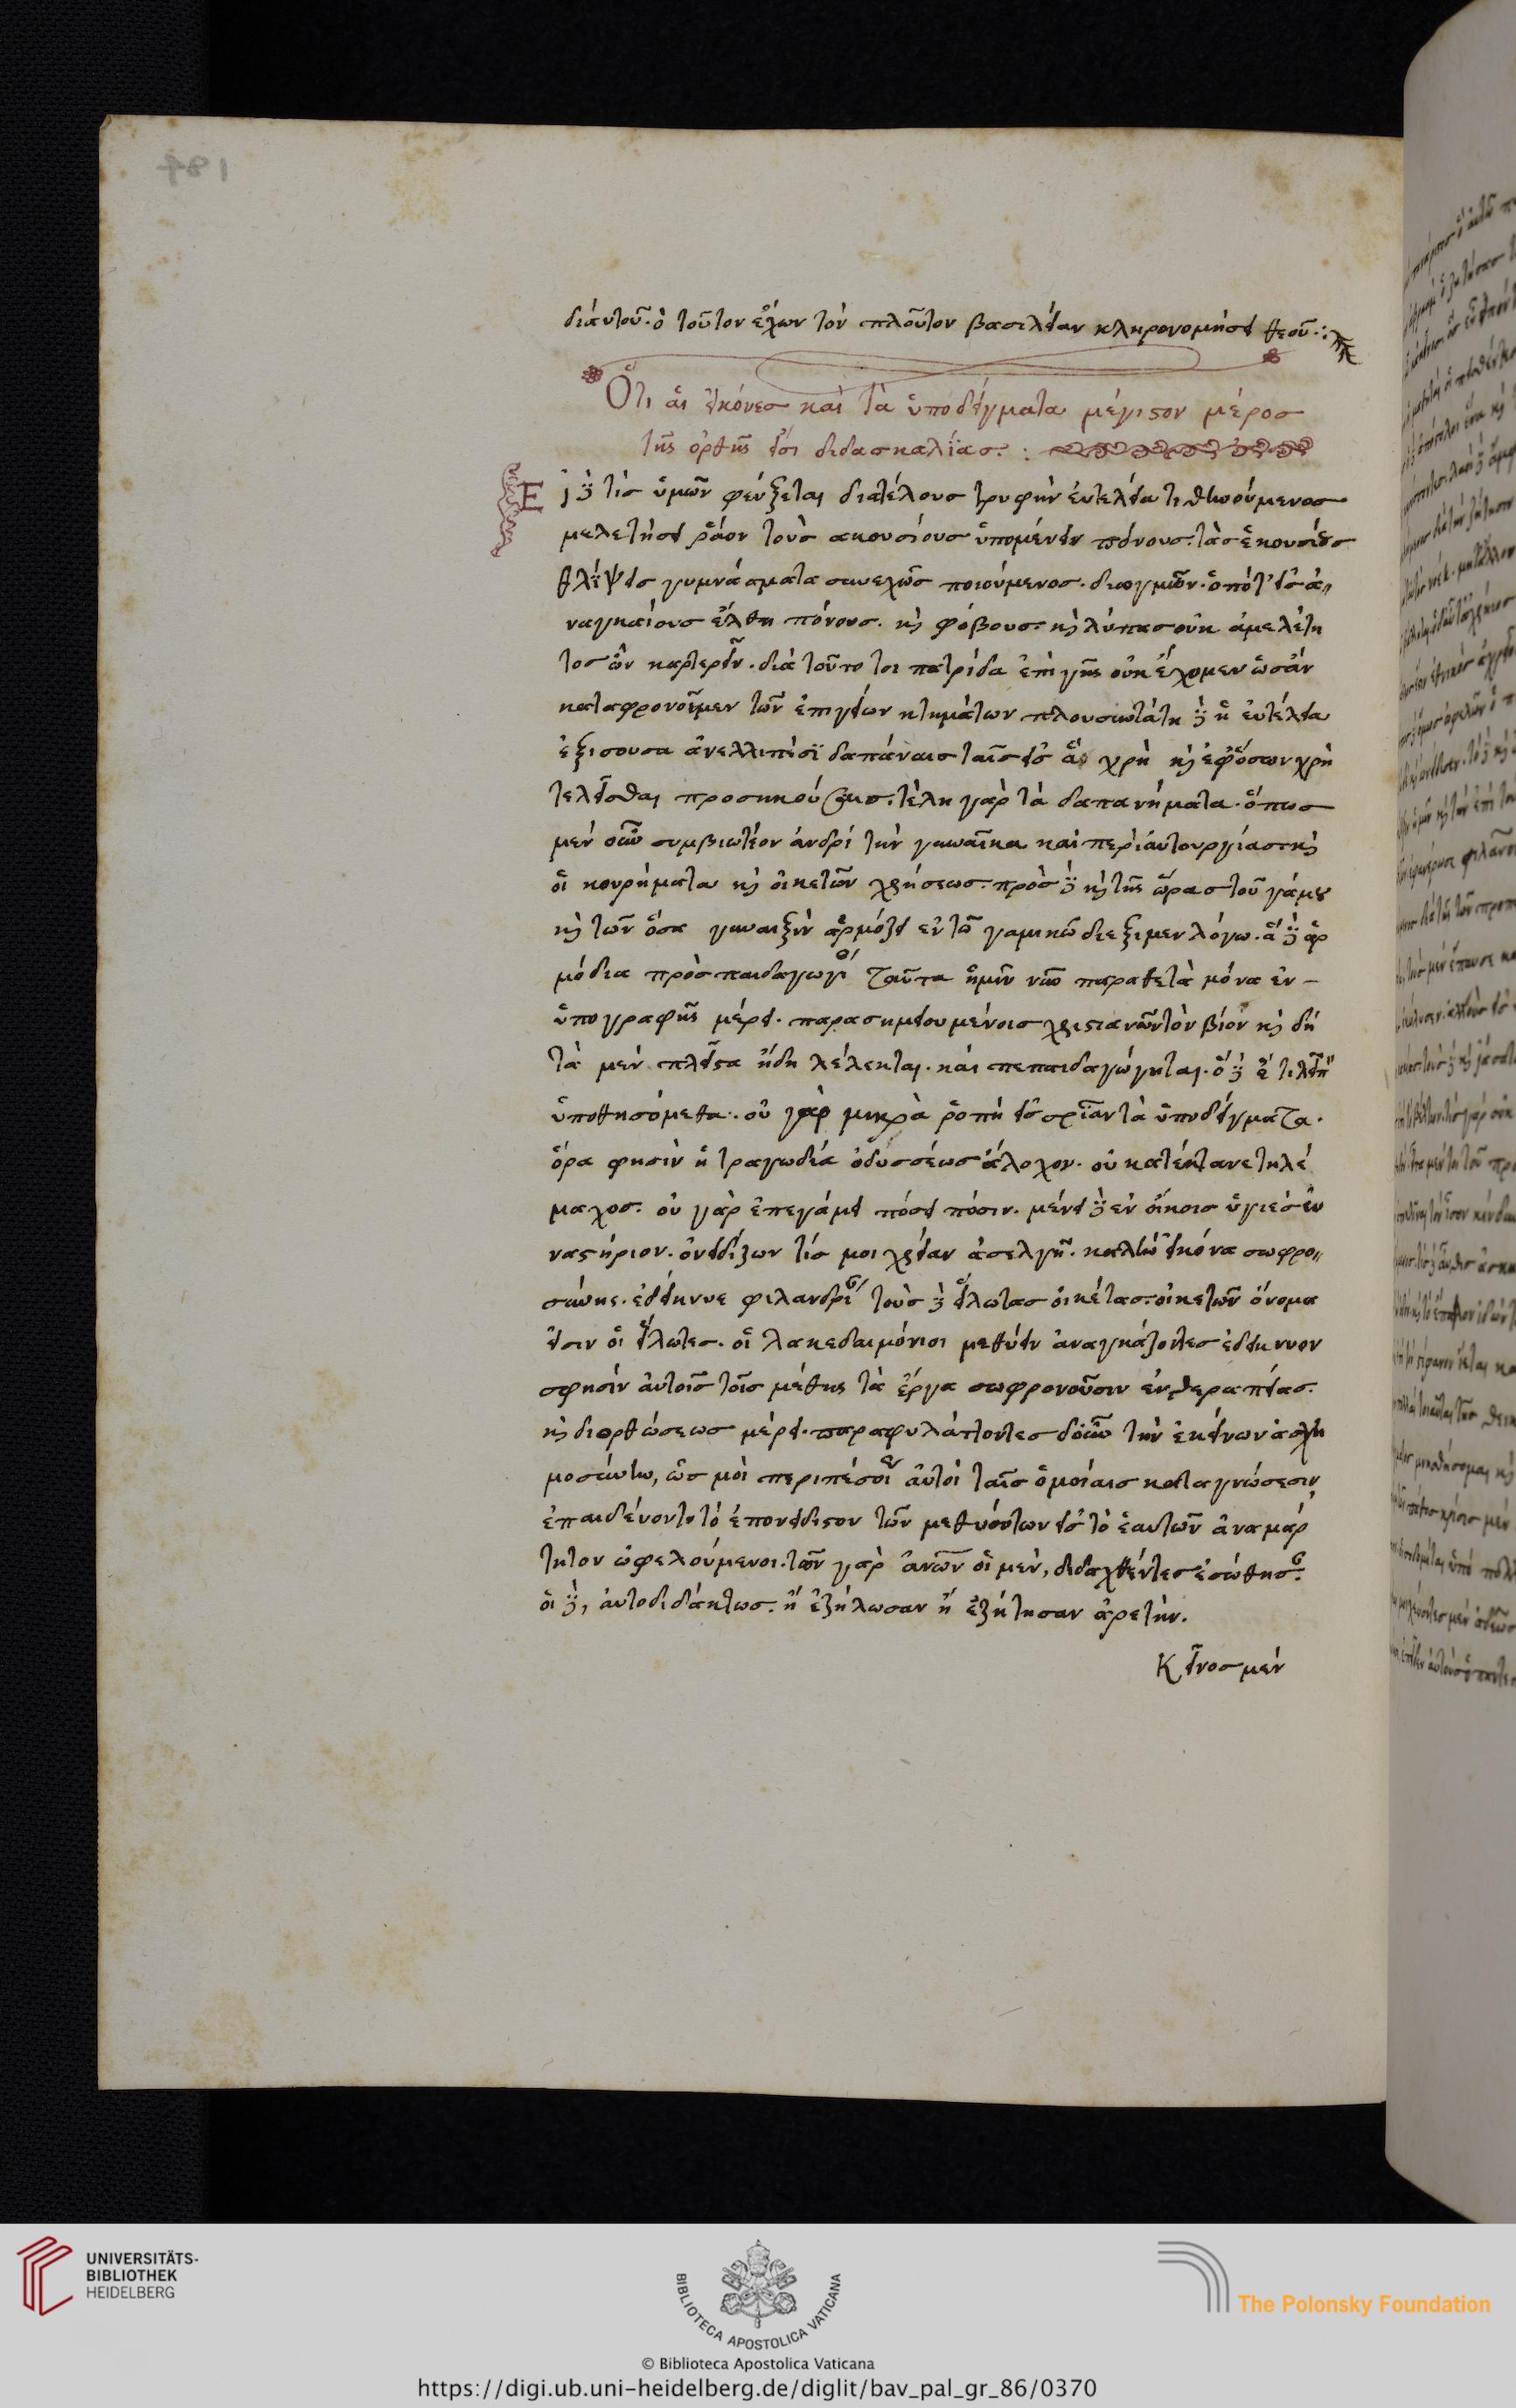 διάυτοῦ. ὁ τοῦτον ἔχων τὸν πλοῦτον βασιλείαν κληρονομήσει θεοῦ.:
Ὅτι ἁι εἰκόνεσ καὶ τὰ ὑποδείγματα μέγιστον μέροσ
τῆς ὀρθῆς εἰσι διδασκαλίασ. :
Ει δὲ τίσ ὑμῶν φεύξεται διατέλουσ τρυφὴν ἐυτελεία τιθηνούμενοσ
μελετήσει ῥᾶον τοὺσ ακουσίουσ ὑπομένειν πόνουσ. τὰσ ἑκουσίουσ
θλίψεισ γυμνάσματα συνεχῶσ ποιούμενοσ. διωγμῶν. ὁπότ' εἰσ ἀ
ναγκαίουσ ἔλθη πόνουσ. κὶ φόβουσ. κὶ λύπασ οὐκ ἀμελέτη
τοσ ὢν καρτερεῖν. διὰ τοῦτο τοι πατρίδα ἐπὶ γῆς οὐκ ἔχομεν ὡσὰν
καταφρονοῖμεν τῶν ἐπιγείων κτημάτων πλουσιωτάτη δὲ ἡ ἐυτέλεια
ἐξισουσα ἀνελλιπέσϊ δαπάναισ ταῖσ εἰσ ἃ χρὴ κὶ ἐφ' ὅσων χρὴ
τελεῖσθαι προσηκούσαισ. τέλη γὰρ τὰ δαπανήματα. ὅπωσ
μὲν οὖν συμβιωτέον ἀνδρί τὴν γυναῖκα καὶ περὶ ἀυτουργίασ τῆς
οἱ κουρήματα κὶ οἰκετῶν χρήσεωσ. πρὸσ δὲ κὶ τῆς ὥρασ τοῦ γάμου
κὶ τῶν ὅσα γυναιξὶν ἁρμόζει ἐν τῶ γαμικῶ διεξιμεν λόγω. ἃ δὲ ἁρ
μόδια πρὸσ παιδαγωγί ταῦτα ἡμῖν νῦν παραθετὰ μόνα ἐν
ὑπογραφῆς μέρει. παρασημειουμένοισ χριστιανῶν τὸν βίον κὶ δὴ
τὰ μὲν πλεῖστα ἤδη λέλεκται. κάι πεπαιδαγώγηται. ὃ δὲ ἔτι λείπ
ὑποθησόμεθα. οὐ γὰρ μικρὰ ῥοπὴ εἰσ σρίαν τὰ ὑποδείγματα.
ὅρα φησὶν ἡ τραγωδία ὀδυσσέωσ ἄλοχον. οὐ κατέκτανε τηλέ
μαχοσ. οὐ γὰρ ἐπεγάμει πόσει πόσιν. μένει δὲ ἐν οἴκοισ ὑγιέσ ἐυ
ναστήριον. ὀνειδίζων τίσ μοιχείαν ἀσελγῆ. καλὴν εἰκόνα σωφρο
σύνης. ἐδείκνυε φιλανδρί τοὺσ δὲ εἵλωτασ οἰκέτασ. οἰκετῶν ὄνομα
εἰσιν οἱ εἵλωτεσ. οἱ λακεδαιμόνιοι μεθύειν ἀναγκάζοντεσ ἐδείκνυον
σφησίν ἀυτοῖσ τοῖσ μέθης τὰ ἔργα σωφρονοῦσιν ἐν θεραπείασ.
κὶ διορθώσεωσ μέρει. παραφυλάττοντεσ δ' οὖν τὴν ἐκείνων ἀσχη
μοσύνην, ὡσ μὸι περιπέσοιεν ἀυτοὶ ταῖσ ὁμοίαισ καταγνώσεσιν
ἐπαιδέυοντο τὸ ἐπονείδιστον τῶν μεθυόντων εἰσ τὸ ἑαυτῶν ἀναμάρ
τητον ὠφελούμενοι. τῶν γὰρ ἀνῶν οἱ μὲν, διδαχθέντεσ ἐσώθησ.
ὁι δὲ, ἀυτοδιδάκτωσ. ἢ ἐζήλωσαν ἢ ἐζήτησαν ἀρετήν.
Κεῖνοσ μὲν
UNIVERSITÄTS-
BIBLIOTHEK
HEIDELBERG
BIBLIOTECA APOSTOLICA VATICANA
The Polonsky Foundation
© Biblioteca Apostolica Vaticana
https://digi.ub.uni-heidelberg.de/diglit/bav_pal_gr_86/0370